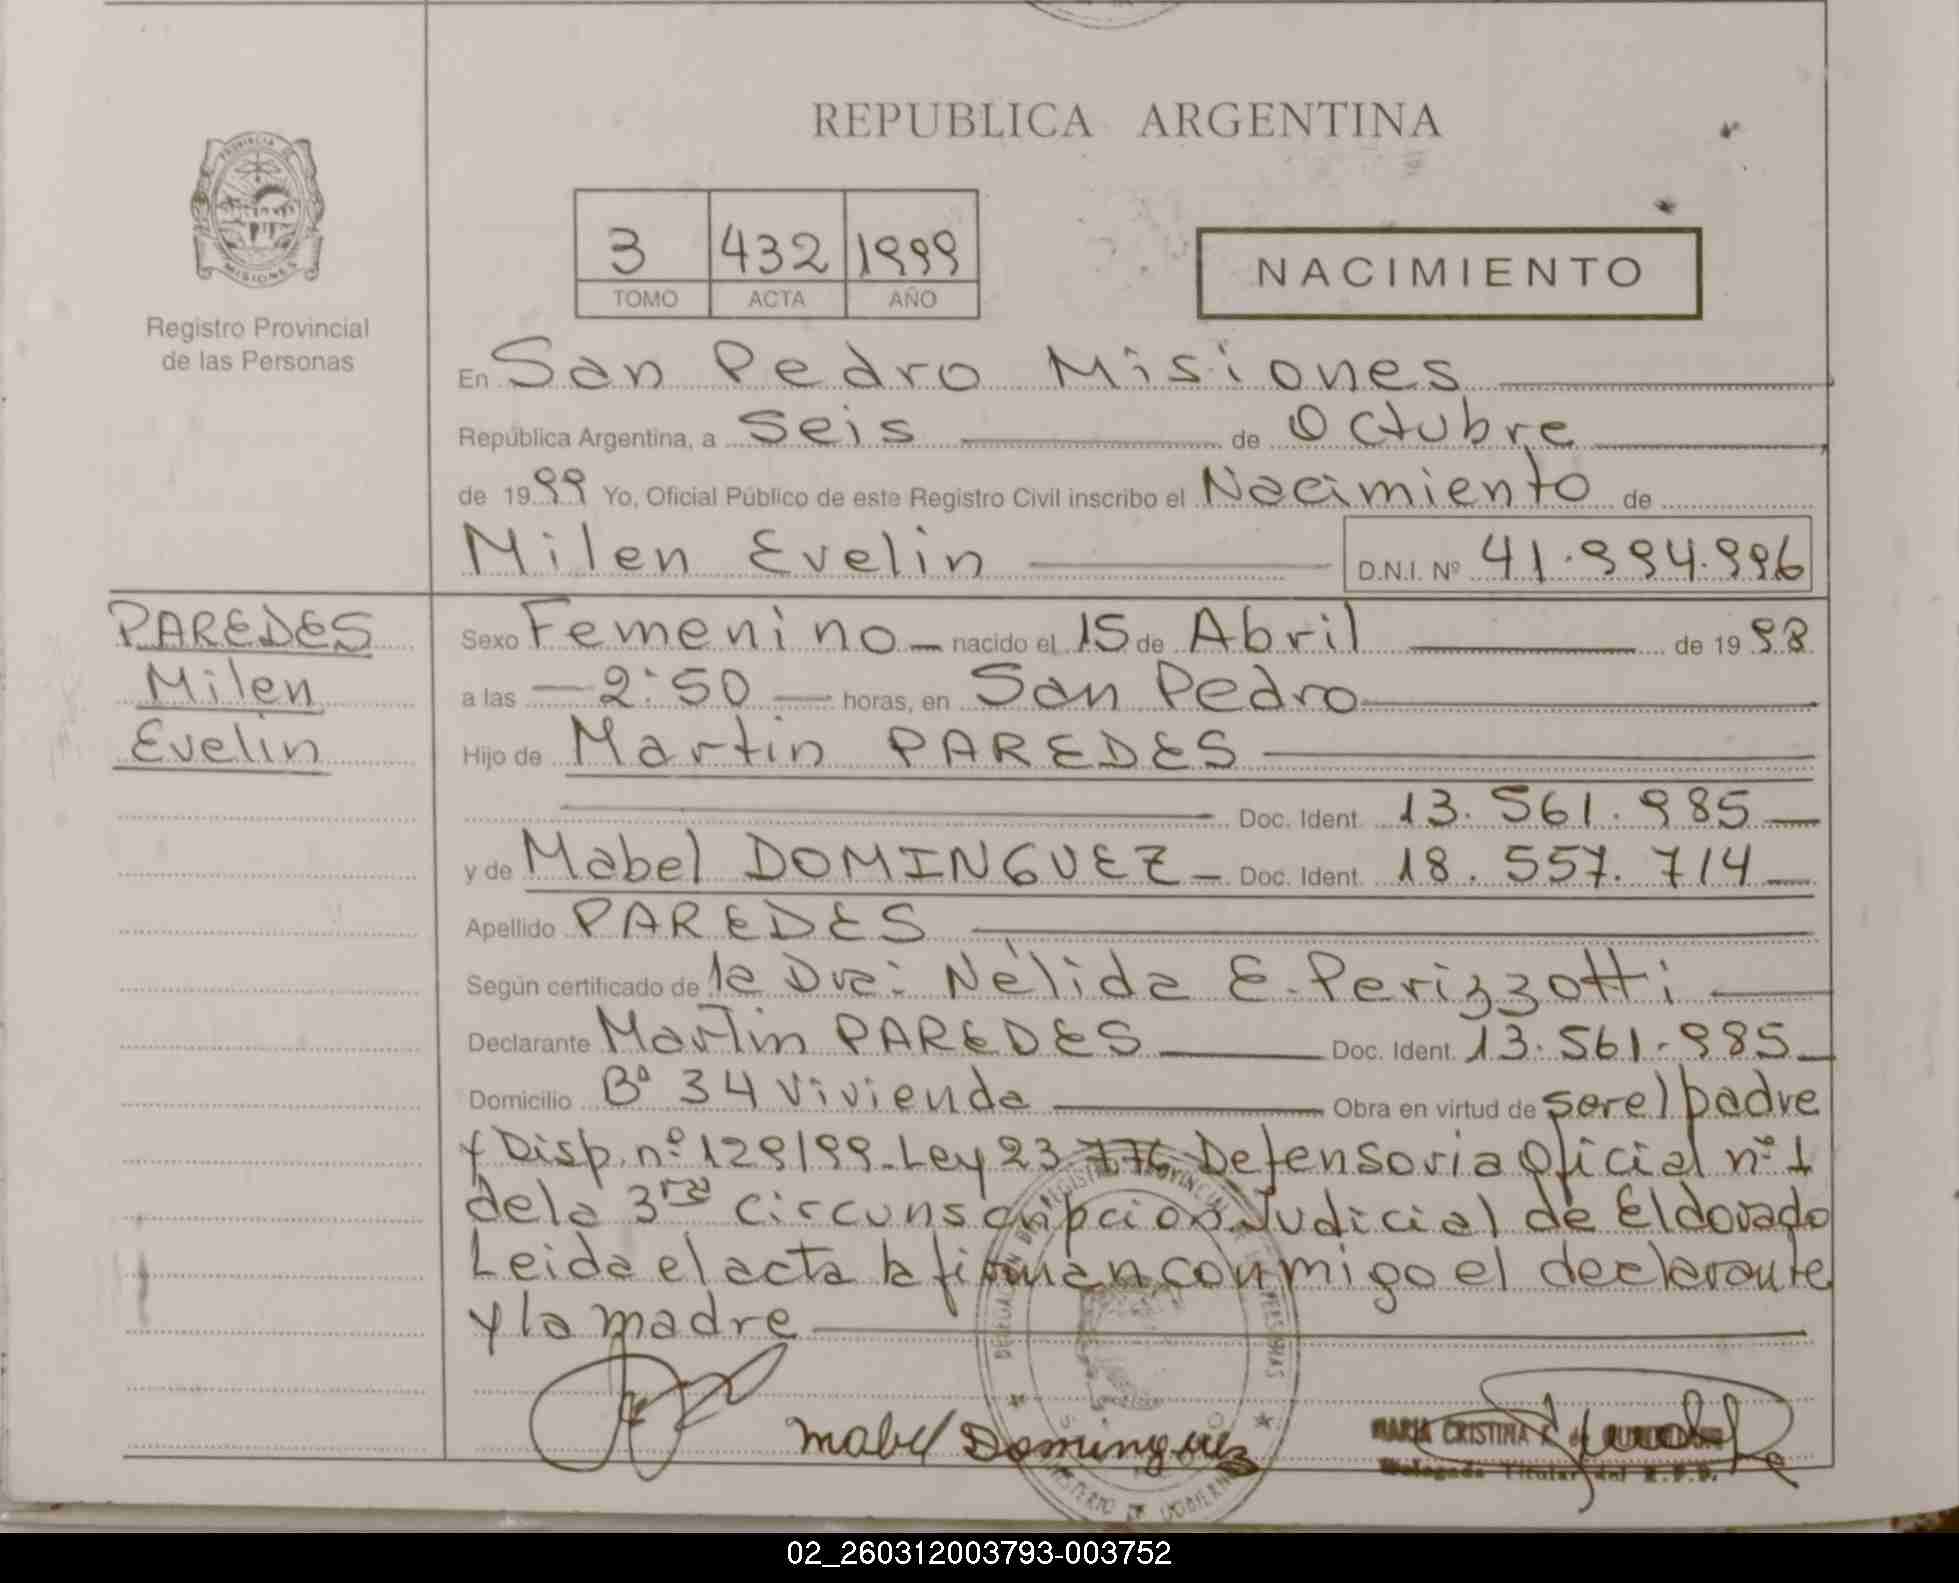 REPUBLICA ARGENTINA
PROVINCIA DE
MISIONES
Registro Provincial
de las Personas
3 432 1999
TOMO ACTA AÑO
NACIMIENTO
En San Pedro Misiones
República Argentina, a Seis de Octubre
de 1999 Yo, Oficial Público de este Registro Civil inscribo el Nacimiento de
Milen Evelin D.N.I. Nº 41.994.996
PAREDES
Milen
Evelin
Sexo Femenino nacido el 15 de Abril de 1998
a las 2:50 horas, en San Pedro
Hijo de Martin PAREDES
Doc. Ident. 13.561.985
y de Mabel DOMINGUEZ Doc. Ident. 18.557.714
Apellido PAREDES
Según certificado de la Dra: Nélida E. Perizzotti
Declarante Martin PAREDES Doc. Ident. 13.561.985
Domicilio Bº 34 Vivienda Obra en virtud de ser el padre
y Disp. nº 129/99 - Ley 23 776 Defensoria Oficial nº 1
de la 3ra Circunscripcion Judicial de Eldorado
Leida el acta la firman conmigo el declarante
y la madre
Mabel Dominguez
MARIA CRISTINA
Delegada Titular del R.P.P.
MINISTERIO DE GOBIERNO
02_260312003793-003752